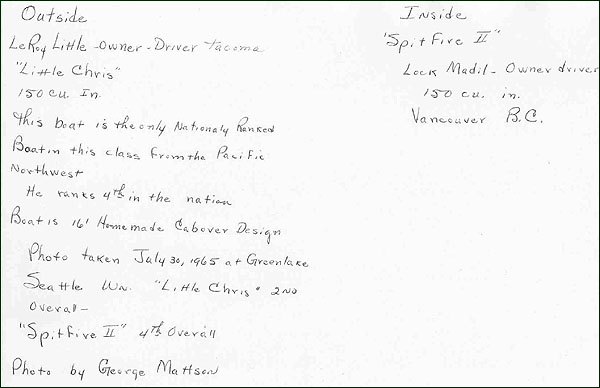 Outside
LeRoy Little - Owner - Driver Tacoma
"Little Chris"
150 cu. In.
This boat is the only Nationaly Ranked
Boat in this class from the Pacific
Northwest
He ranks 4th in the nation
Boat is 16' Homemade Cabover Design
Photo taken July 30, 1965 at Greenlake
Seattle Wn. "Little Chris" 2nd
Overal -
"Spitfire II" 4th Overall
Photo by George Mattson
Inside
"Spitfire II"
Lock Madil - Owner driver
150 cu. in.
Vancouver B.C.